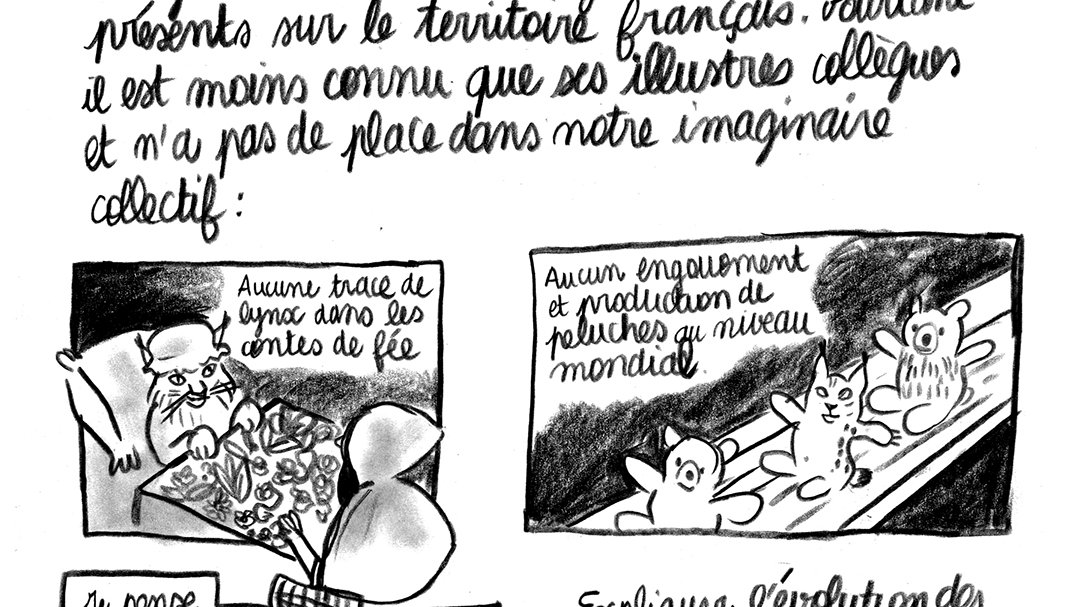 présents sur le territoire français. Pourtant
il est moins connu que ses illustres collègues
et n'a pas de place dans notre imaginaire
collectif :
Aucune trace de
lynx dans les
contes de fée
Aucun engouement
et production de
peluches au niveau
mondial.
Je pense
Expliquer l'évolution des